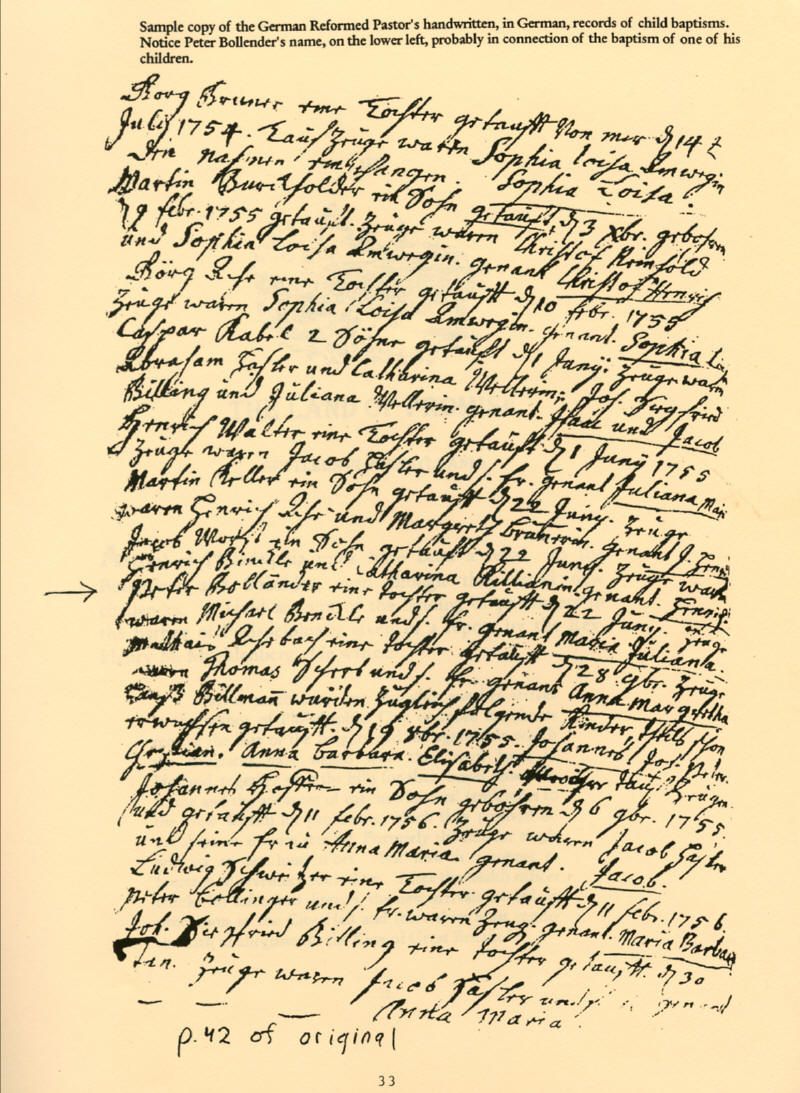 Sample copy of the German Reformed Pastor's handwritten, in German, records of child baptisms.
Notice Peter Bollender's name, on the lower left, probably in connection of the baptism of one of his
children.
Görg Bruner eine Tochter getaufft Von mir d 14 t
July 1754. Tauf Zeuge waren Sophia Loisa Amwegin
den nahmen empfangen. Sophia Loisa.
Martin Burckholder ein Sohn getauft d 3 xbr. gebohren
9 febr. 1755 getauft. Zeuge waren Christof Reinhold
und Sophia Loisa Amwegin. genant Christof Henrich
Görg eine Tochter getaufft d 10 febr. 1755
Zeuge waren Sophia Loisa Amwegin. genant. Sophia L
Caspar Kabel 2 Söhne getaufft d 1 Juny. Zeuge waren
Abraham Häsler und Catharina Wellerin, Joh. Siegfried
Billing und Juliana Wellerin. genant. Isaac und Jacob
Henrich Walter eine Tochter getaufft d 1 Juny 1755
Zeuge waren Jacob Häsler und s. fr. genant Juliana Mar
Martin Keller ein Sohn getaufft d 22 Juny. Zeuge
waren Henrich und Margreth Brunerin. genant J. Henr
Jacob ein Sohn getaufft d 22 Juny. Zeuge waren
Henrich Binckle und Catharina Killianin genant. Henrich
Peter Bolländer eine tochter getaufft d 22 Juny. Zeuge
waren Michael Benckle und s. fr. genant Maria Juliana.
Mathais eine tochter getaufft d 28 gbr. Zeuge
waren Thomas Scherb und s. fr. genant Anna Margretha
Billman wurden Zugleich folgende Kinder, theils schon
erwachsen getaufft. d 19 xbr. 1755. Johannes, Joh. Peter.
Christian. Anna Barbara. Elisabeth. tauf Zeugen
Johannes ein Sohn gebohren d 6 gbr. 1755
und getaufft d 11 febr. 1756. Zeuge waren Jacob Häsler
und seine frau Anna Maria. genant. Jacob.
Ludwig Schweitzer eine Tochter getaufft d 11 febr. 1756.
Peter Bollinger und s. fr. waren Zeug. genant. Maria Barbara
Joh. Siegfried Billing eine tochter getaufft. d 30
Jan. Zeuge waren Jacob Häsler und s. genant
Anna Maria
p. 42 of original
33